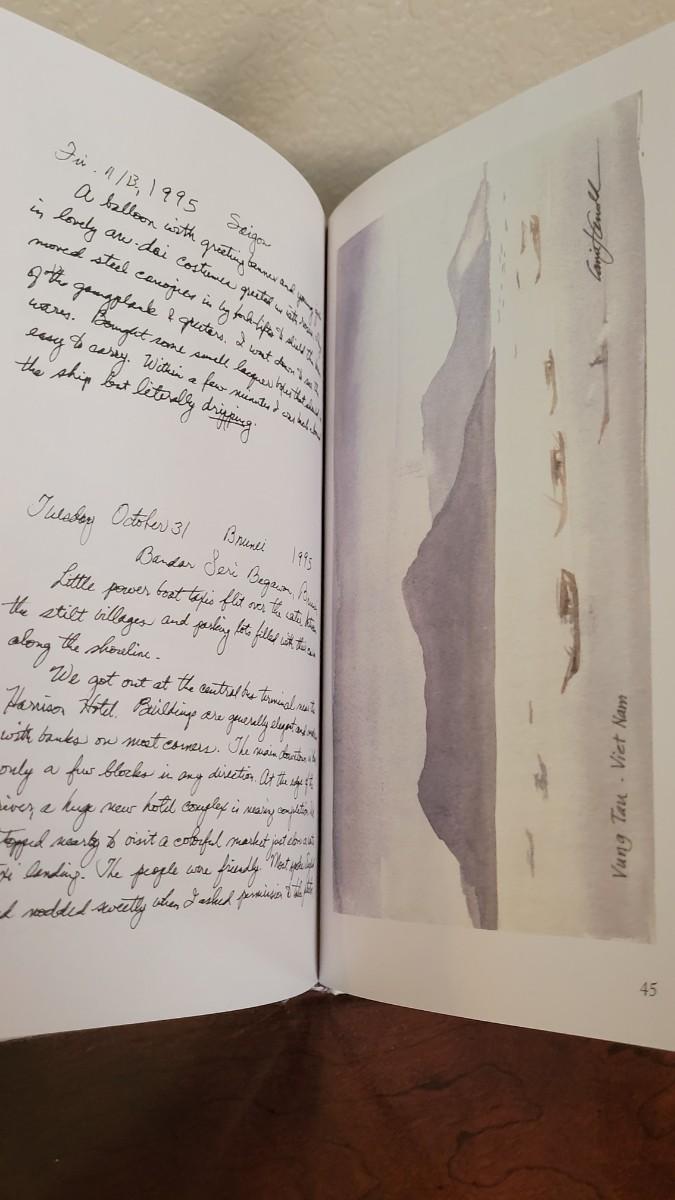 Fri. 11/13, 1995 Saigon
A balloon with greeting banner and young
in lovely aw-dai costumes greeted us with
moved steel canopies in by fork-lifts to shield the
of the gangplank & greeters. I went down to see the
wares. Bought some small lacquer boxes that
easy to carry. Within a few minutes I was back
the ship but literally dripping.
Tuesday October 31 Brunei 1995
Bandar Seri Begawan,
Little power boat taxis flit over the water
the stilt villages and parking lots filled with
along the shoreline.
We got out at the central bus terminal near the
Harrison Hotel. Buildings are generally elegant and
with banks on most corners. The main downtown is
only a few blocks in any direction. At the edge of the
river, a huge new hotel complex is nearing completion.
topped nearby to visit a colorful market just
landing. The people were friendly. Most
d nodded sweetly when I asked permission to take
Vung Tau · Viet Nam
45